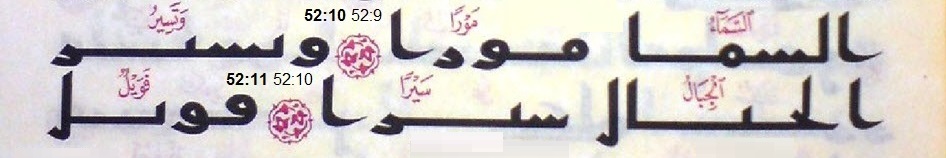 السَّمَآءُ مَوْرًا 52:10 52:9 وَتَسِيرُ
السما مورا وتسير
ٱلْجِبَالُ سَيْرًا 52:11 52:10 فَوَيْلٌ
الجبال سيرا فويل